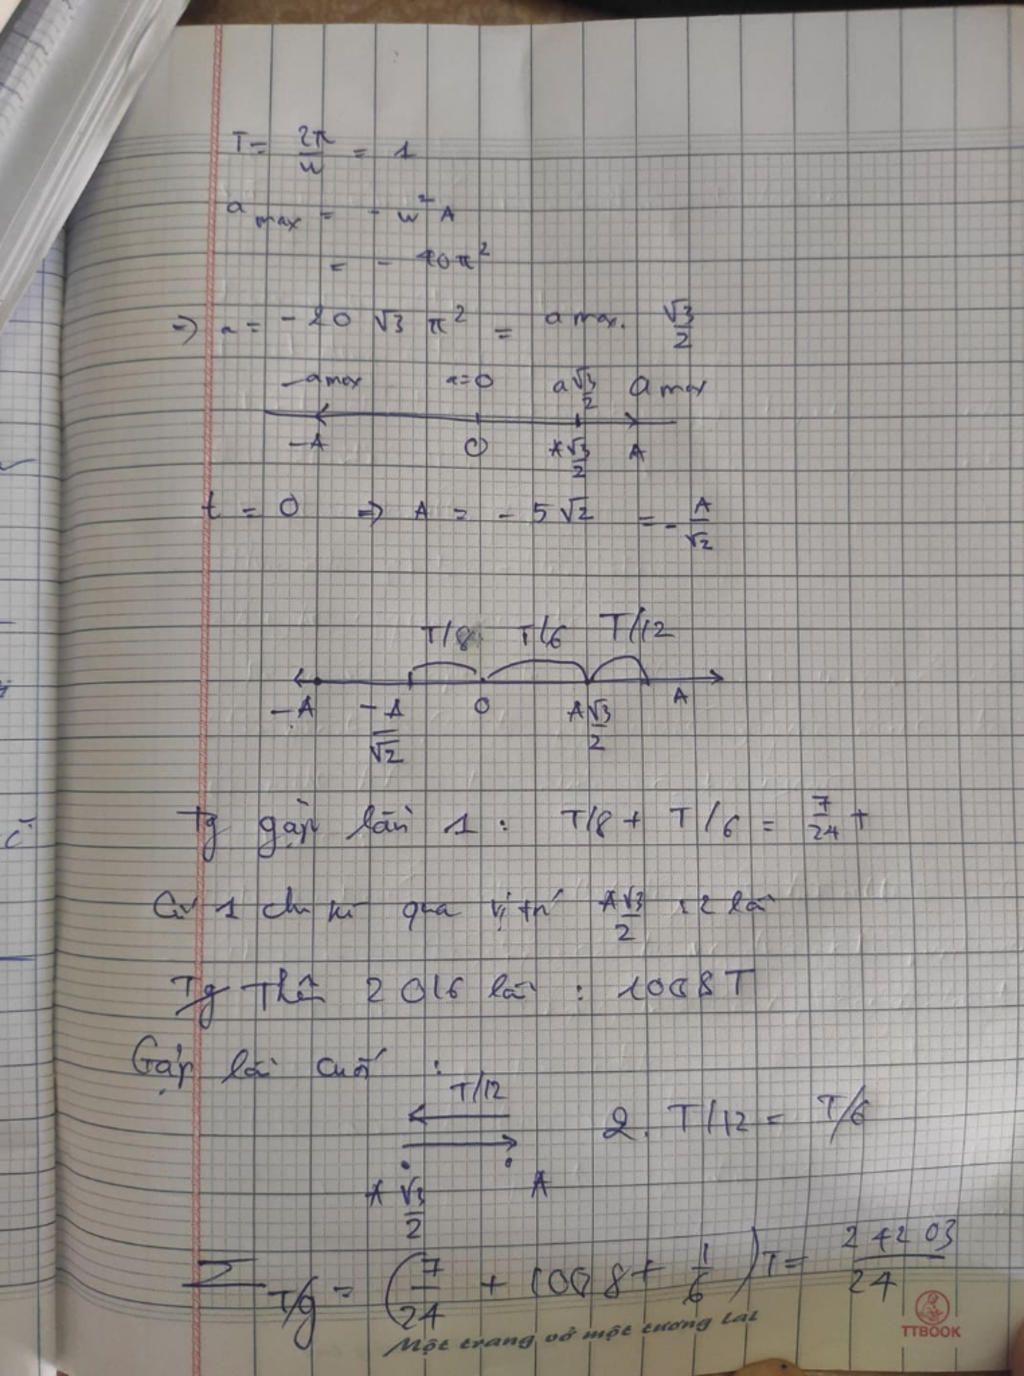 T = 2π/ω = 1
a max = - ω² A
= - 40π²
=> a = - 20 √3 π² = a max. √3/2
-a max a=0 a√3/2 a max
-A O A√3/2 A
t = 0 => A = - 5√2 = - A/√2
T/8 T/6 T/12
-A -A/√2 O A√3/2 A
Tg gặp lần 1 : T/8 + T/6 = 7/24 T
Cứ 1 chu kì qua vị trí A√3/2 : 2 lần
Tg Thêm 2016 lần : 1008T
Gặp lần cuối :
T/12 2. T/12 = T/6
A√3/2 A
Σ T/g = (7/24 + 1008 + 1/6) T = 24203/24
Một trang vở một tương lai
TTBOOK